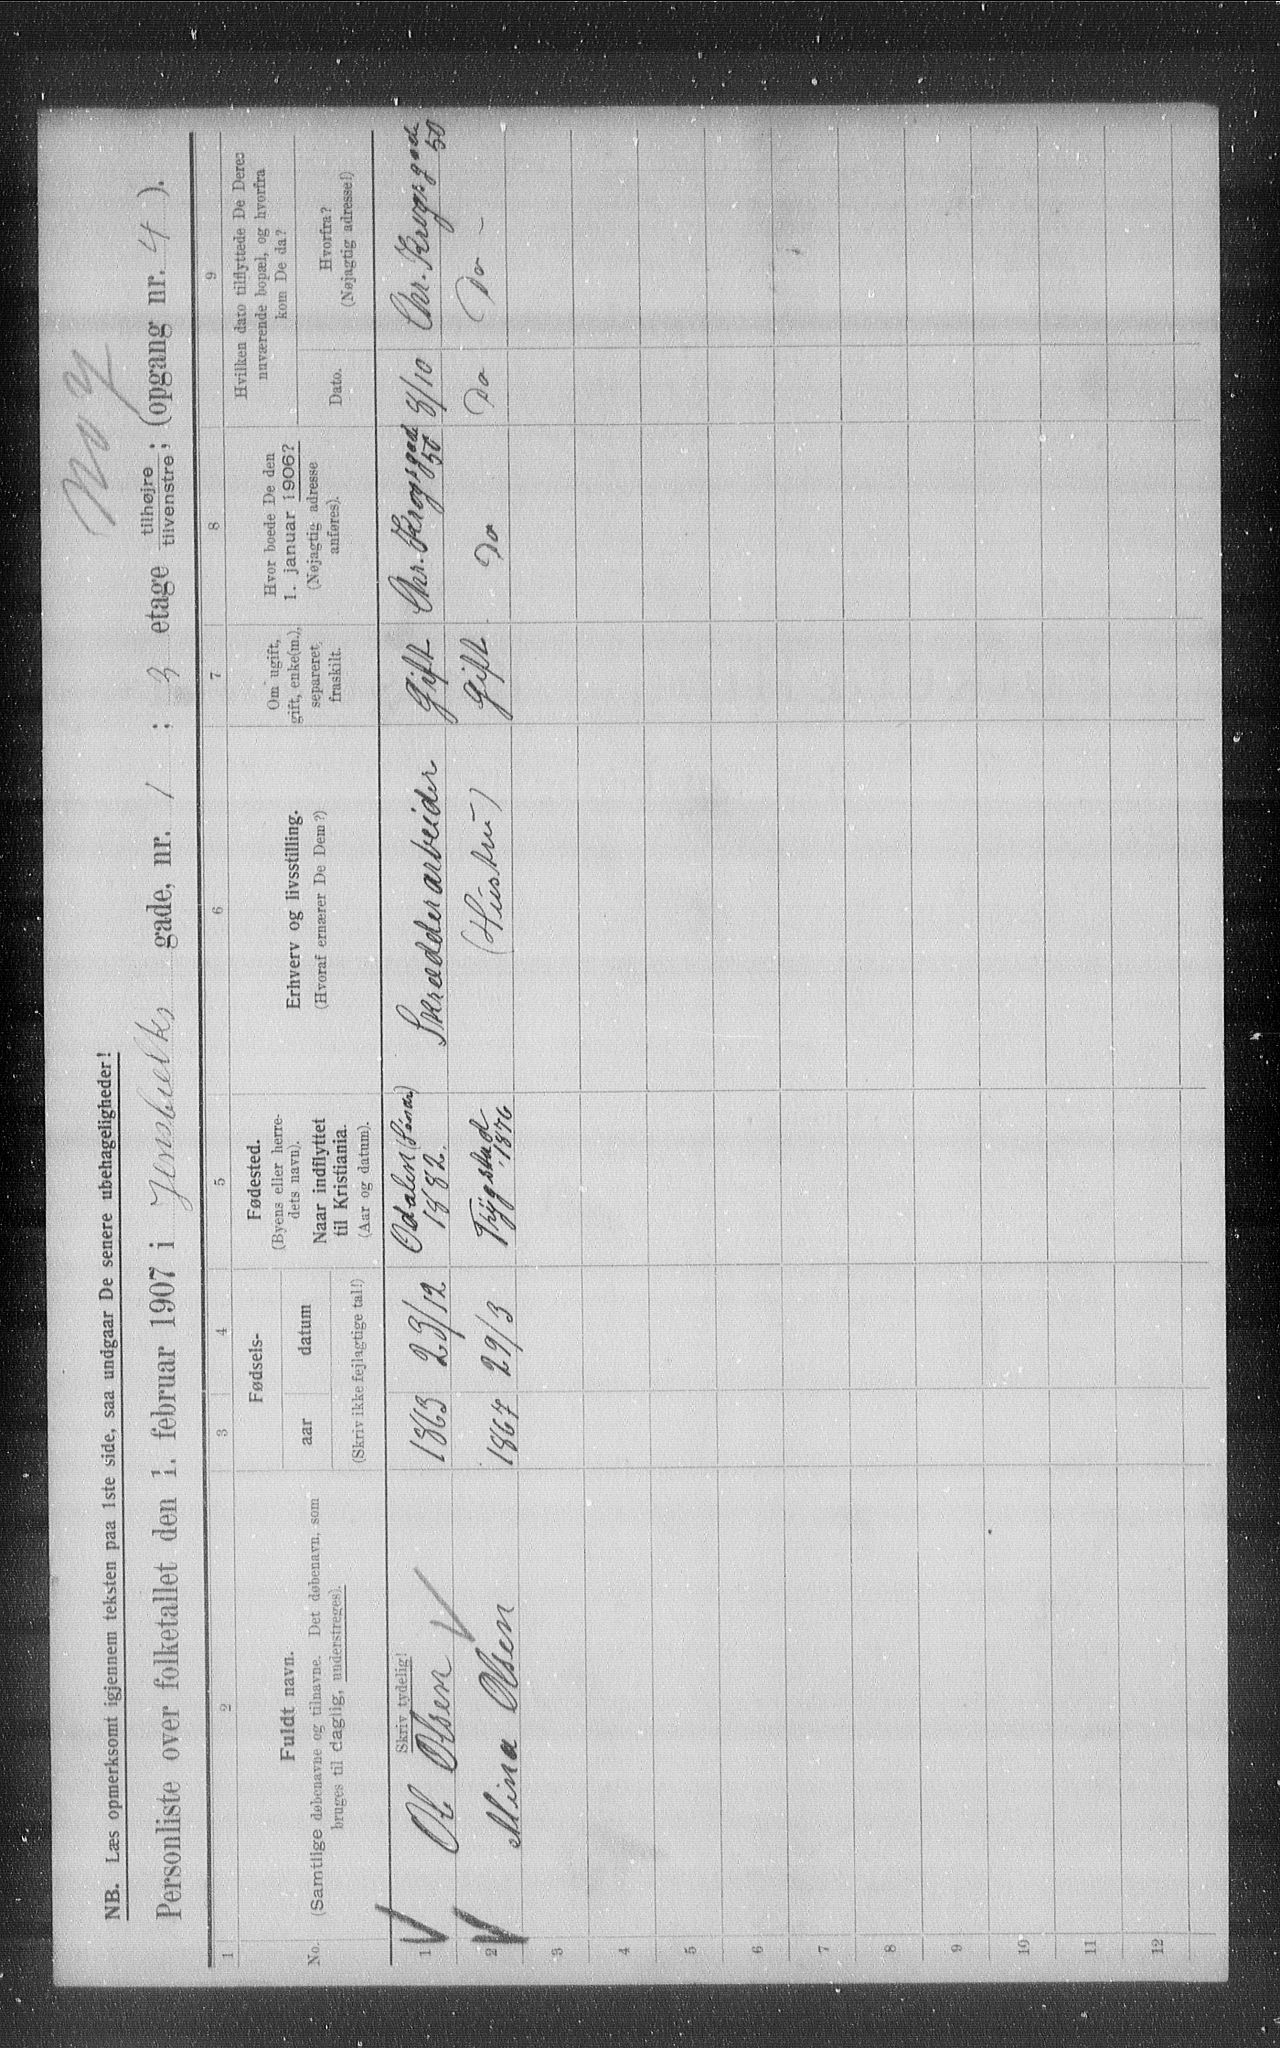 NB. Læs opmerksomt igjennem teksten paa 1ste side, saa undgaar De senere ubehageligheder!
Personliste over folketallet den 1. februar 1907 i Jensbjelks gade, nr. 1 ; 3 etage tilhøjre tilvenstre; (opgang nr. 4 ).
1 2 3 4 5 6 7 8 9
No.
Fuldt navn.
(Samtlige døbenavne og tilnavne. Det døbenavn, som
bruges til daglig, understreges).
Fødsels-
aar datum
(Skriv ikke fejlagtige tal!)
Fødested.
(Byens eller herre-
dets navn).
Naar indflyttet
til Kristiania.
(Aar og datum).
Erhverv og livsstilling.
(Hvoraf ernærer De Dem?)
Om ugift,
gift, enke(m.),
separeret,
fraskilt.
Hvor boede De den
1. januar 1906?
(Nøjagtig adresse
anføres).
Hvilken dato tilflyttede De Deres
nuværende bopæl, og hvorfra
kom De da?
Dato.
Hvorfra?
(Nøjagtig adresse!)
Skriv tydelig!
1 Ol Olsen 1863 23/12 Odalen 1882. Skrædderarbeider gift Chr. Krogsgad 50 8/10 Chr. Krogsgade 50
2 Mina Olsen 1867 29/3 Trygstad 1876 (Hustru) gift Do Do Do -
3
4
5
6
7
8
9
10
11
12